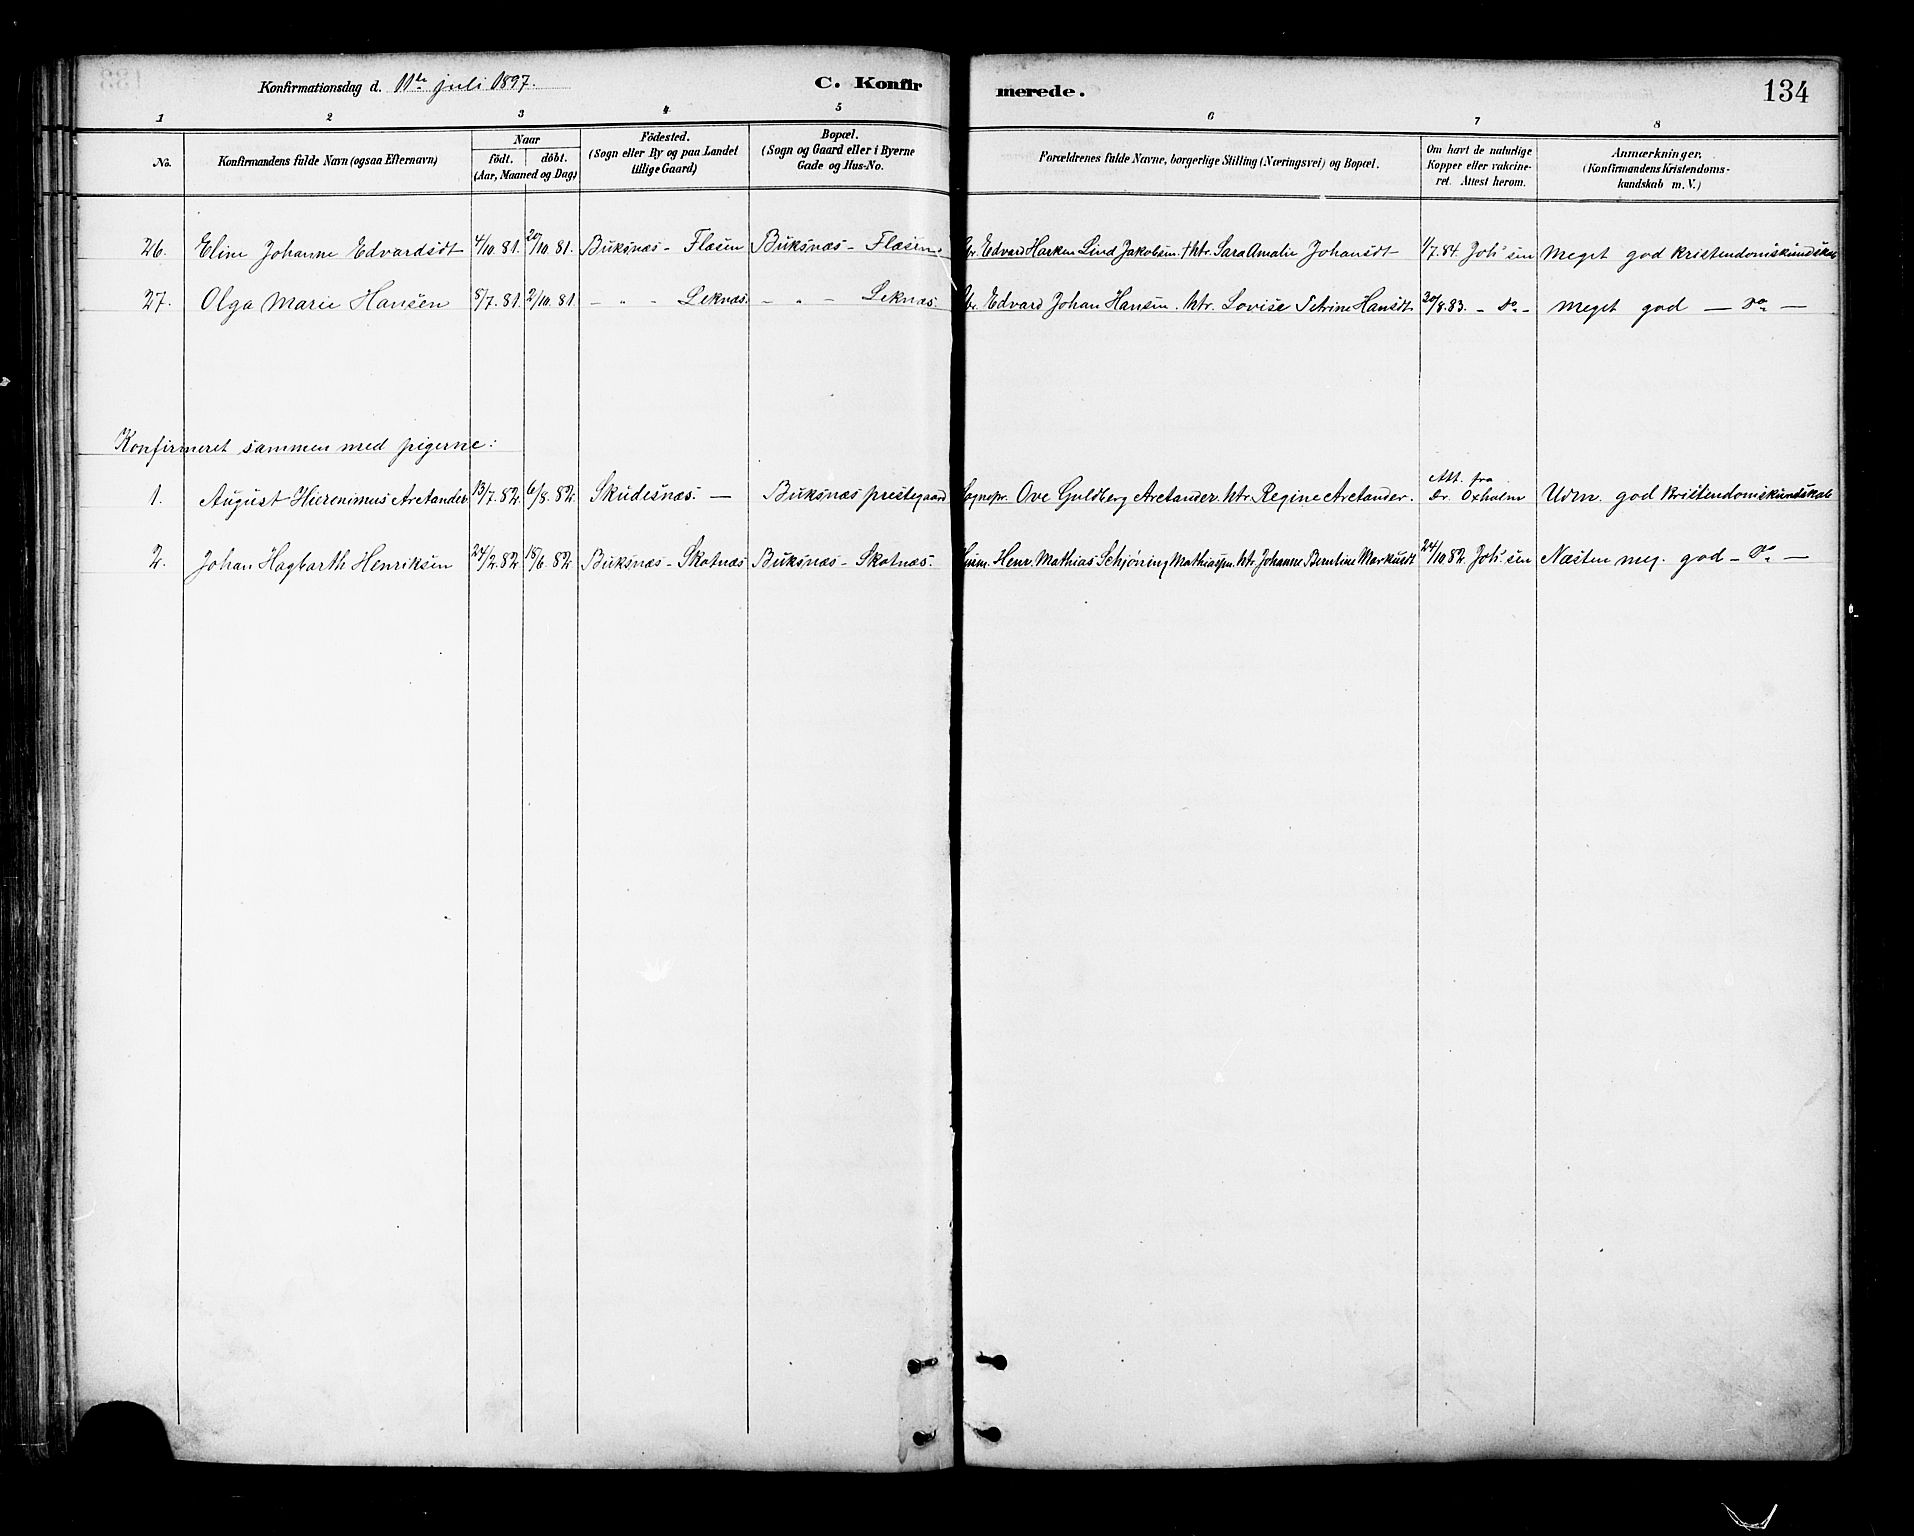 Konfirmationsdag d. 11te juli 1897.
C. Konfirmerede.
134
1 2 3 4 5 6 7 8
No.
Konfirmandens fulde Navn (ogsaa Efternavn)
Naar
født. døbt.
(Aar, Maaned og Dag)
Fødested.
(Sogn eller By og paa Landet
tillige Gaard)
Bopæl.
(Sogn og Gaard eller i Byerne
Gade og Hus-No.
Forældrenes fulde Navne, borgerlige Stilling (Næringsvei) og Bopæl.
Om havt de naturlige
Kopper eller vakcine-
ret. Attest herom.
Anmærkninger.
(Konfirmandens Kristendoms-
kundskab m. V.)
26. Eline Johanne Edvardsdt 4/10.81. 20/10.81. Buksnæs - Flæsen Buksnæs - Flæsen. Edvard Hacken Lind Jakobsen. htr. Sara Amalie Johansdt 1/7.84. Joh'sen Meget god kristendomskundskab
27. Olga Marie Hansen 8/7.81. 2/10.81 - " - Leknæs. - " - Leknæs. Edvard Johan Hansen. htr. Lovise Petrine Hansdt 20/8.83. - do - Meget god - do -
Konfirmeret sammen med pigerne:
1. August Hieronimus Arctander 13/7.82. 6/8.82. Skudesnæs. - Buksnæs prestegaard Sognepr. Ove Guldberg Arctander. htr. Regine Arctander. Att. fra Dr. Oxholm Udm. god kristendomskundskab
2. Johan Hagbarth Henriksen 24/2.82 18/6.82 Buksnæs - Skotnæs Buksnæs - Skotnæs. Henr. Mathias Schjøning Mathiassen. htr. Johanne Berntine Markusdt 24/10.82. Joh'sen Næsten meg. god - do -